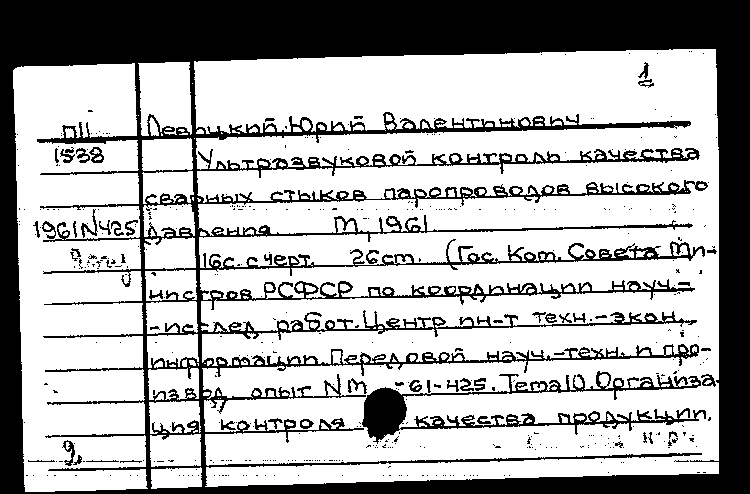 1
П11 Левицкий, Юрий Валентинович
1538 Ультразвуковой контроль качества
сварных стыков паропроводов высокого
1961 N425 давления М, 1961
16с. с черт. 26см. (Гос. Ком. Совета Ми-
нистров РСФСР по координации науч.-
-исслед работ. Центр ин-т техн.-экон.
информации. Передовой науч.-техн. и про-
извод опыт N М -61-425. Тема 10. Организа-
ция контроля качества продукции.
9.